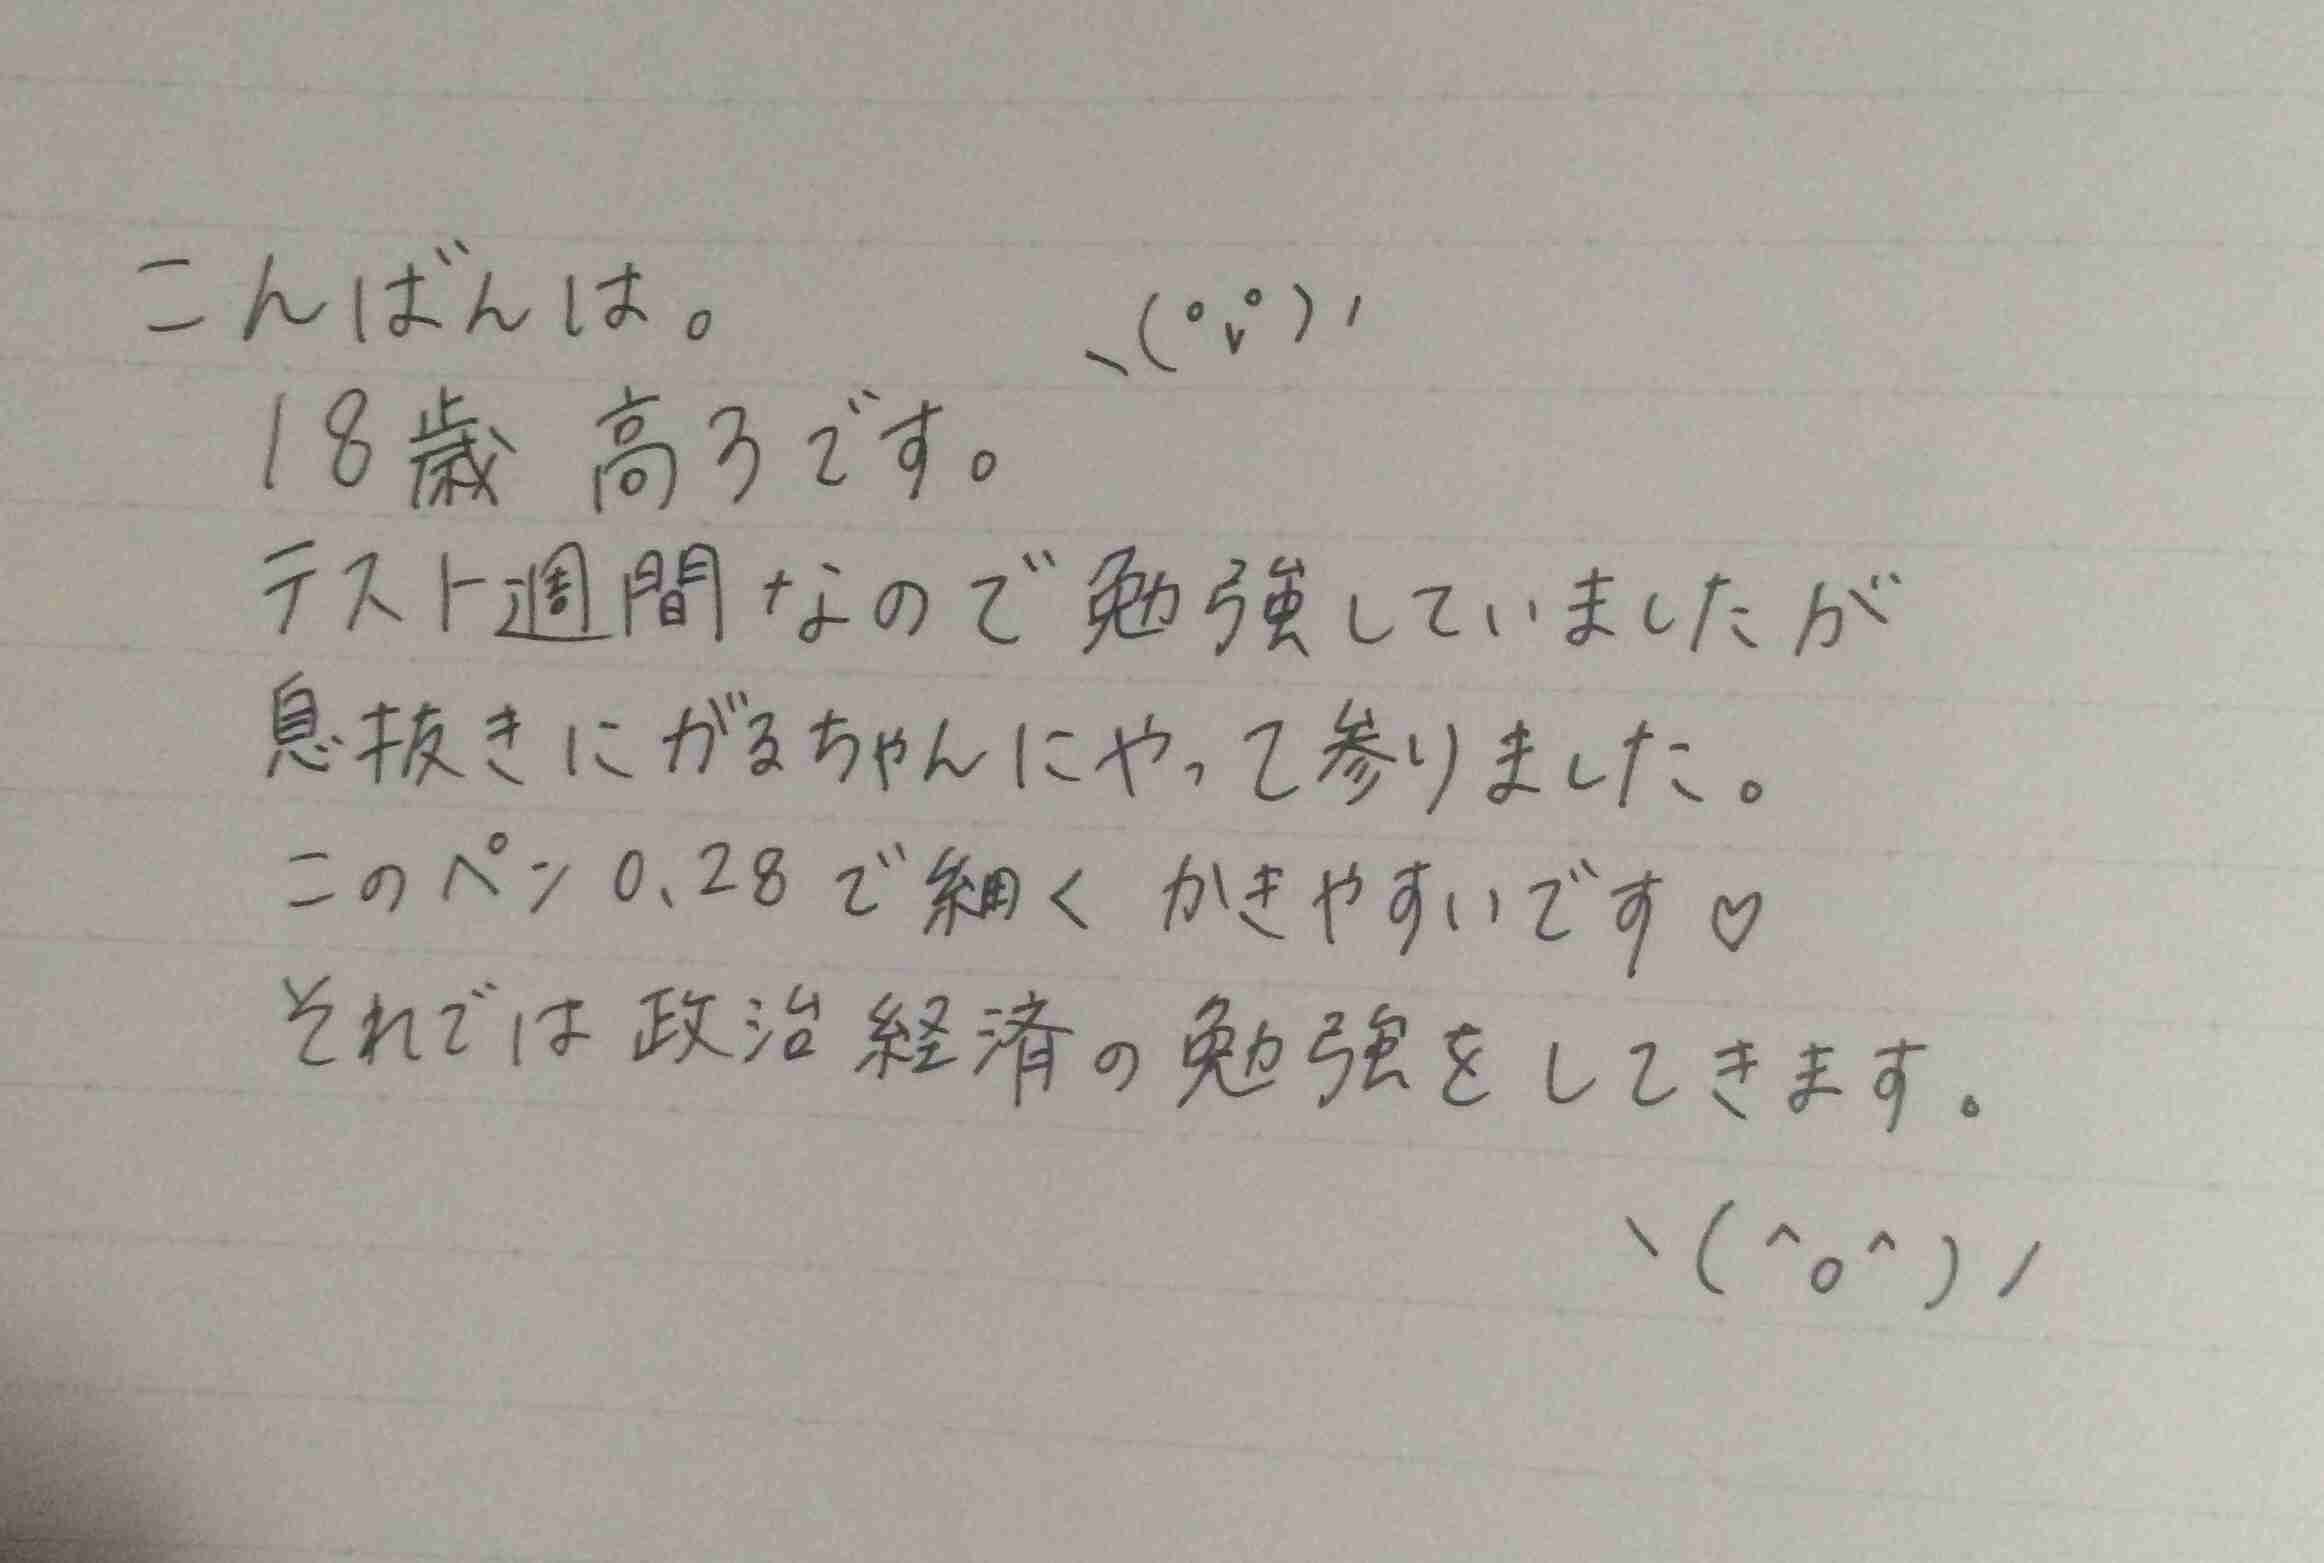 こんばんは。 ヽ(°ⅴ°)ノ
18歳 高3です。
テスト週間なので勉強していましたが
息抜きにがるちゃんにやって参りました。
このペン0.28で細く かきやすいです♡
それでは政治経済の勉強をしてきます。
ヽ(^o^)ノ